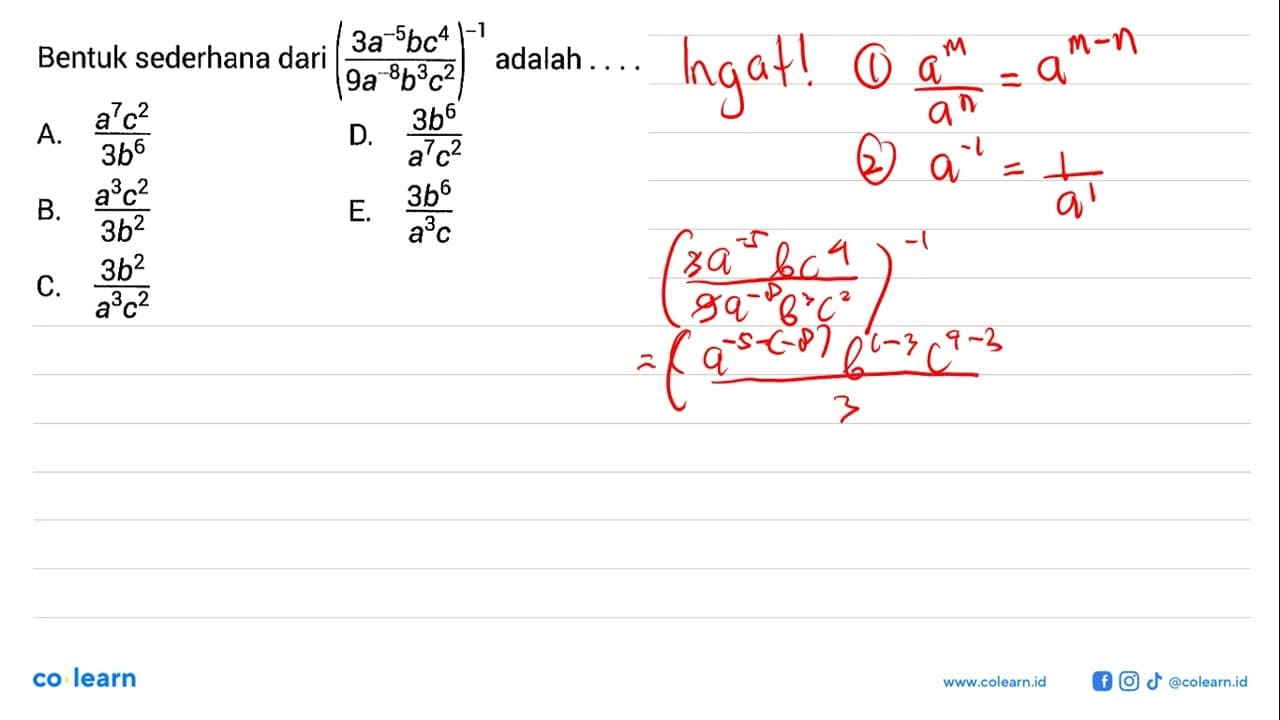 Bentuk sederhana dari (3a⁻⁵bc⁴ / 9a⁻⁸b³c²)⁻¹ adalah . . . .
A. a⁷c² / 3b⁶
B. a³c² / 3b²
C. 3b² / a³c²
D. 3b⁶ / a⁷c²
E. 3b⁶ / a³c
Ingat! ① aᵐ / aⁿ = aᵐ⁻ⁿ
② a⁻¹ = 1 / a¹
(3a⁻⁵bc⁴ / 9a⁻⁸b³c²)⁻¹
= (a⁻⁵⁻⁽⁻⁸⁾ b¹⁻³ c⁴⁻³ / 3
co learn
www.colearn.id
@colearn.id